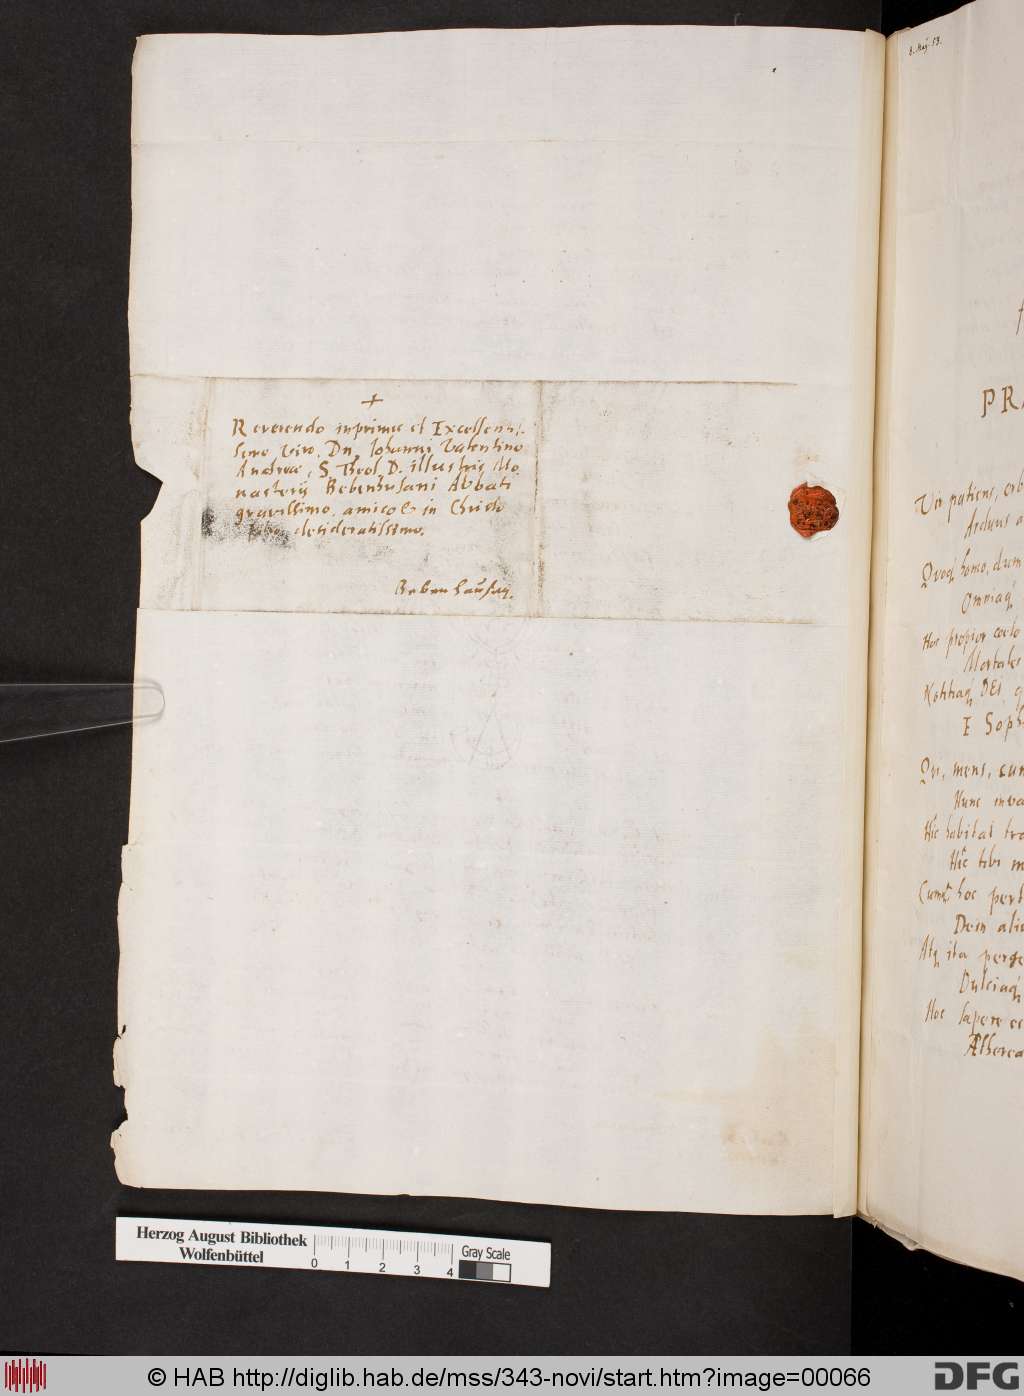 +
Reverendo inprimis et Excellentis-
simo Viro, Dn. Johanni Valentino
Andreae, S. Theol. D. illustris Mo
nasterij Bebenhusani Abbati
gravissimo, amico in Christo
desideratissimo.
Bebenhausen.
8. Maij. 53.
PRA
Vir patiens, orb
Arduus a
Quoq homo, dum
Omniaq
Hoc propior coelo
Mortales
Notitiaq DEI q
E Soph
Qui, mens, cum
Hunc inva
Hic habitat tra
Hic tibi m
Cumq hoc pert
Dein alia
Atq ita perge
Dulciaq
Hoc sapere es
Ætherea
Herzog August Bibliothek
Wolfenbüttel
0 1 2 3 4
Gray Scale
© HAB http://diglib.hab.de/mss/343-novi/start.htm?image=00066
DFG